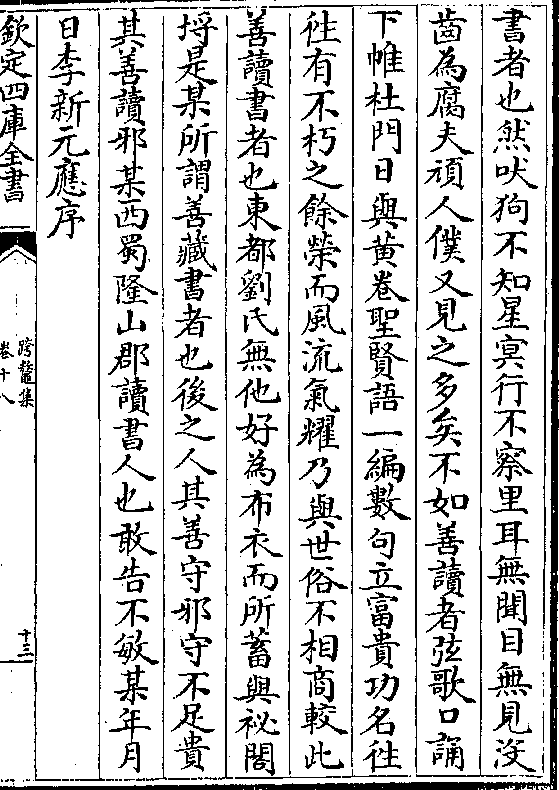 書者也然吠狗不知星㝠行不察里耳無聞目無見沒
齒為腐夫頑人僕又見之多矣不如善讀者弦歌口誦
下帷杜門日與黄卷聖賢語一編數句立富貴功名徃
徃有不朽之餘榮而風流氣耀乃與世俗不相商較此
善讀書者也東都劉氏無他好為布衣而所蓄與祕閣
埒是某所謂善藏書者也後之人其善守邪守不足貴
其善讀邪某西蜀隆山郡讀書人也敢告不敏某年月
日李新元應序
欽定四庫全書
跨鼇集
卷十八
十三